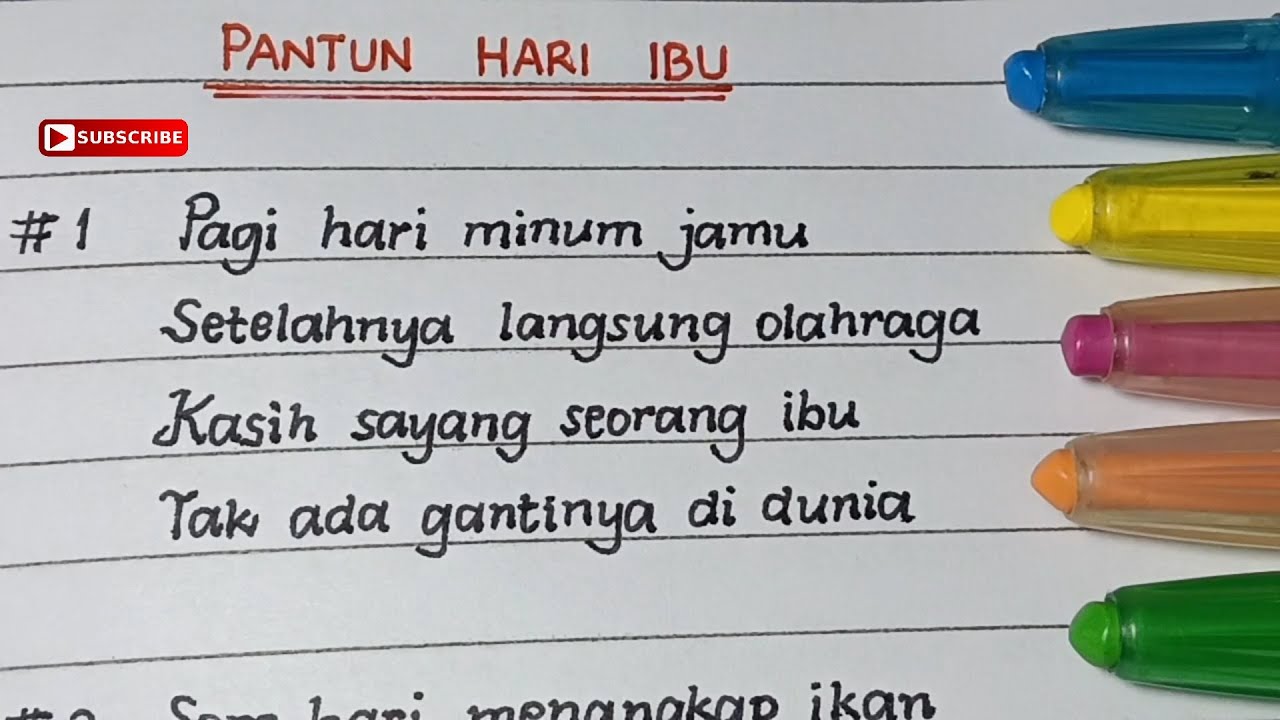 PANTUN HARI IBU
SUBSCRIBE
#1 Pagi hari minum jamu
Setelahnya langsung olahraga
Kasih sayang seorang ibu
Tak ada gantinya di dunia
hari menangkap ikan